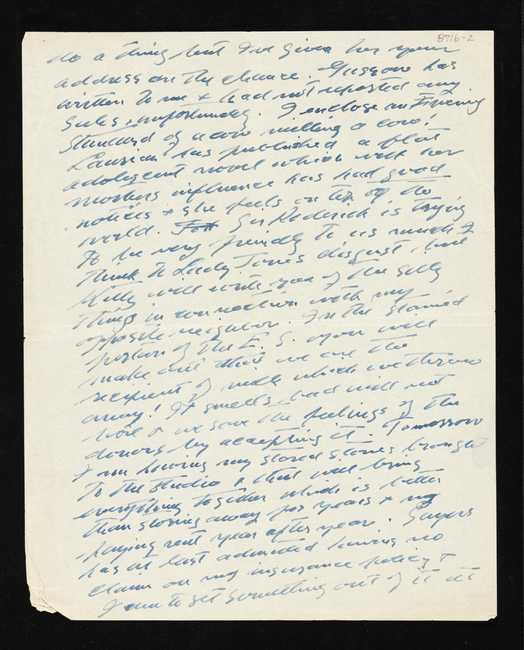 8716-2
do a thing but I've given her your
address on the chance. has
written to me & had not reported any
sales unfortunately. I enclose an Evening
Standard of a cow milking a cow!
has published a flat
adolescent novel which with her
mothers influence has had good
notices & she feels on top of the
world. Sir Roderick is trying
to be very friendly to us much I
think to Lady Jones disgust, but
Kitty will write you of the silly
things in connection with my
opposite neighbor. In the stained
portion of the E. S. you will
make out that we are the
recipient of milk which we throw
away! It smells bad will not
boil & we save the feelings of the
donors by accepting it. Tomorrow
I am having my stored stones brought
to the studio & that will bring
everything together which is better
than storing away for years & my
paying rent year after year.
has at last admitted having no
claim on my insurance policy &
I am to get something out of it at